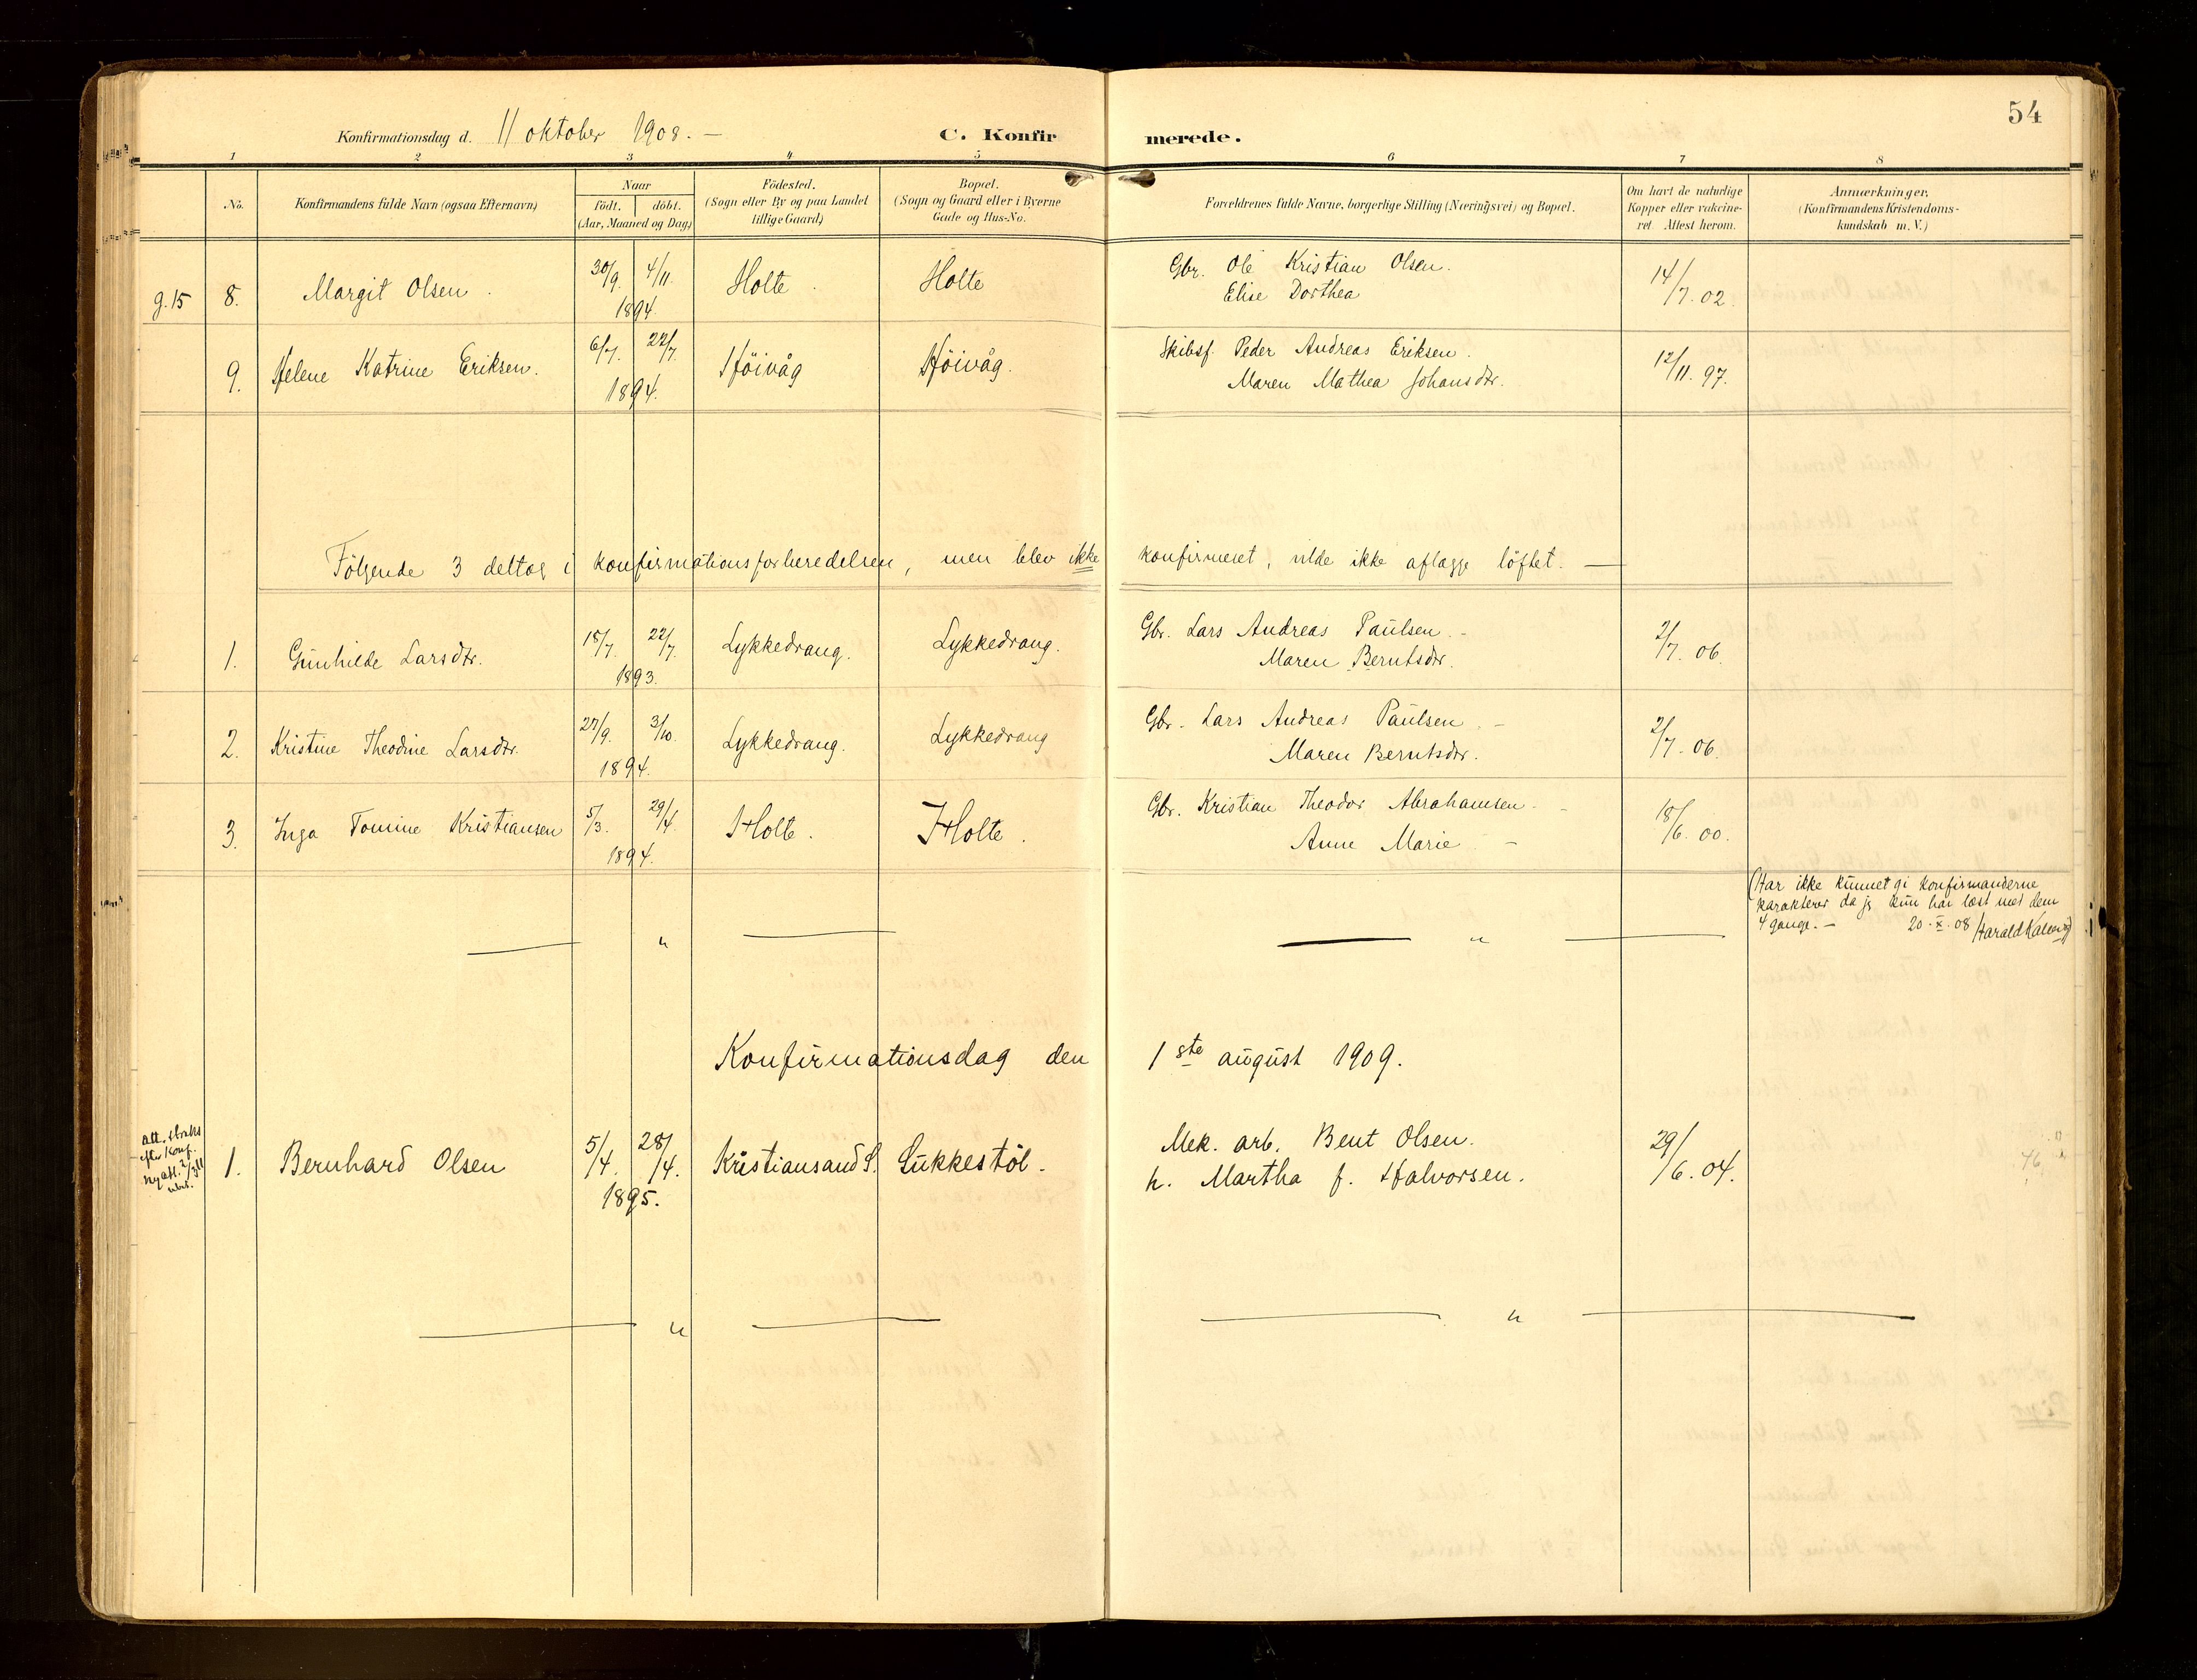 54
Konfirmationsdag d. 11 oktober 1908. —
C. Konfirmerede.
1 2 3 4 5 6 7 8
No.
Konfirmandens fulde Navn (ogsaa Efternavn)
Naar
födt. döbt.
(Aar, Maaned og Dag)
Födested.
(Sogn eller By og paa Landet
tillige Gaard)
Bopæl.
(Sogn og Gaard eller i Byerne
Gade og Hus-No.
Forældrenes fulde Navne, borgerlige Stilling (Næringsvei) og Bopæl.
Om havt de naturlige
Kopper eller vakcine-
ret. Attest herom.
Anmærkninger.
(Konfirmandens Kristendoms-
kundskab m. V.)
g. 15 8. Margit Olsen. 30/9. 4/11. 1894. Holte. Holte
Gbr. Ole Kristian Olsen.
Elise Dorthea
14/7. 02.
9. Helene Katrine Eriksen. 6/7. 22/7. 1894. Höivåg Höivåg.
Skibsf. Peder Andreas Eriksen.
Maren Mathea Johansdtr.
12/11. 97.
Fölgende 3 deltog i konfirmationsforberedelsen, men blev ikke konfirmeret, vilde ikke aflægge löftet. —
1. Gunhilde Larsdtr. 15/7. 22/7. 1893. Lykkedrang. Lykkedrang.
Gbr. Lars Andreas Paulsen. -
Maren Berntsdtr.
2/7. 06.
2. Kristine Theodine Larsdtr. 27/9. 3/10. 1894. Lykkedrang. Lykkedrang
Gbr. Lars Andreas Paulsen. -
Maren Berntsdtr.
2/7. 06.
3. Inga Tomine Kristiansen 5/3. 29/4. 1894. Holte. Holte.
Gbr. Kristian Theodor Abrahamsen. -
Anne Marie. -
18/6. 00.
(Har ikke kunnet gi konfirmanderne
karakterer da jeg kun har læst med dem
4 gange. — 20. X. 08 Harald Kalewig)
— " — — " —
Konfirmationsdag den 1ste august 1909.
Att. straks
efter konf.
Ny att. 2/3 11
1. Bernhard Olsen 5/4. 28/4. 1895. Kristiansand S. Sukkestöl.
Mek. arb. Bent Olsen.
h. Martha f. Halvorsen.
29/6. 04.
— " — — " —